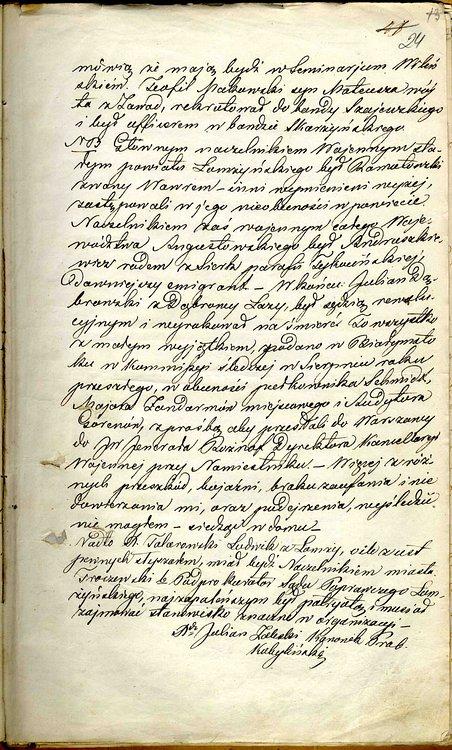 13
24
mówią że mają bydź w Seminarjum Wileń
skiém. Teofil Makowski syn Mateusza wój
ta z Zawad, rekrutował do bandy Szajewskiego
i był officerem w bandzie Skarzyńskiego
Głównym naczelnikiem Wojennym sta
rym powiatu Łomżyńskiego był Ramotowski
zwany Wawrem – inni wymienieni wyżej,
zastępowali w jego nieobecności w powiecie
Naczelnikiem zaś wojennym całego Woje-
wództwa Augustowskiego był Andruszkie-
wicz rodem z parafii Tykocińskiej,
Dawniejszy emigrant – W końcu Julian Dą-
browski z Dąbrowy Łazy, był sędzią rewolu-
cyjnym i wyrokował na śmierć To wszystko
z małym wyjątkiem, podano w Białymsto
ku w Kommissji śledczej w Sierpniu roku
przeszłego, w obecności pułkownika Schmidt,
Majora Żandarmów miejscowego i Audytora
z prośbą aby przesłali do Warszawy
do JW Jenerała Dyrektora Kancellaryi
Wojennej przy Namiestniku. – Więcej z róż
nych przeszkód, bojaźni, braku zaufania i nie
dowierzania mi, oraz podejrzenia, wyśledzić
nie mogłem – siedząc w domu –
Nadto P. Talarowski Ludwik z Łomży, ile z ust
pewnych słyszałem, miał bydź Naczelnikiem miasta.
b. Podprokurator Sądu Poprawczego Łom
żyńskiego, najzapaleńszym był patryotą i musiał
zajmować stanowisko znaczne w organizacyi –
Xdz Julian Zaleski Kanonik Prob.
Kobyliński